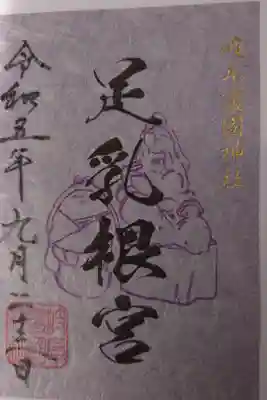 護國神社
足乳根宮
令和五年九月二十三日